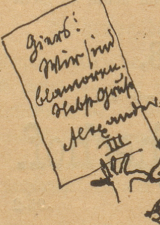 Giers!
Wir sind
blamoren.
Nebst Gruß
Alexander
III